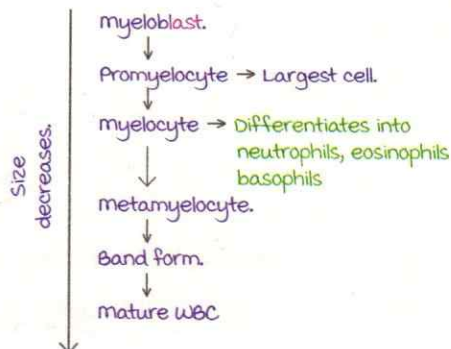 myeloblast.
Promyelocyte → Largest cell.
myelocyte → Differentiates into
neutrophils, eosinophils
basophils
metamyelocyte.
Band form.
mature WBC
Size
decreases.